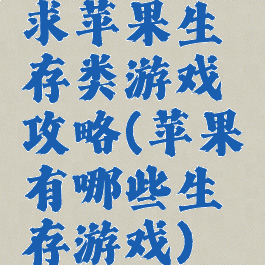 求苹果生
存类游戏
攻略(苹果
有哪些生
存游戏)